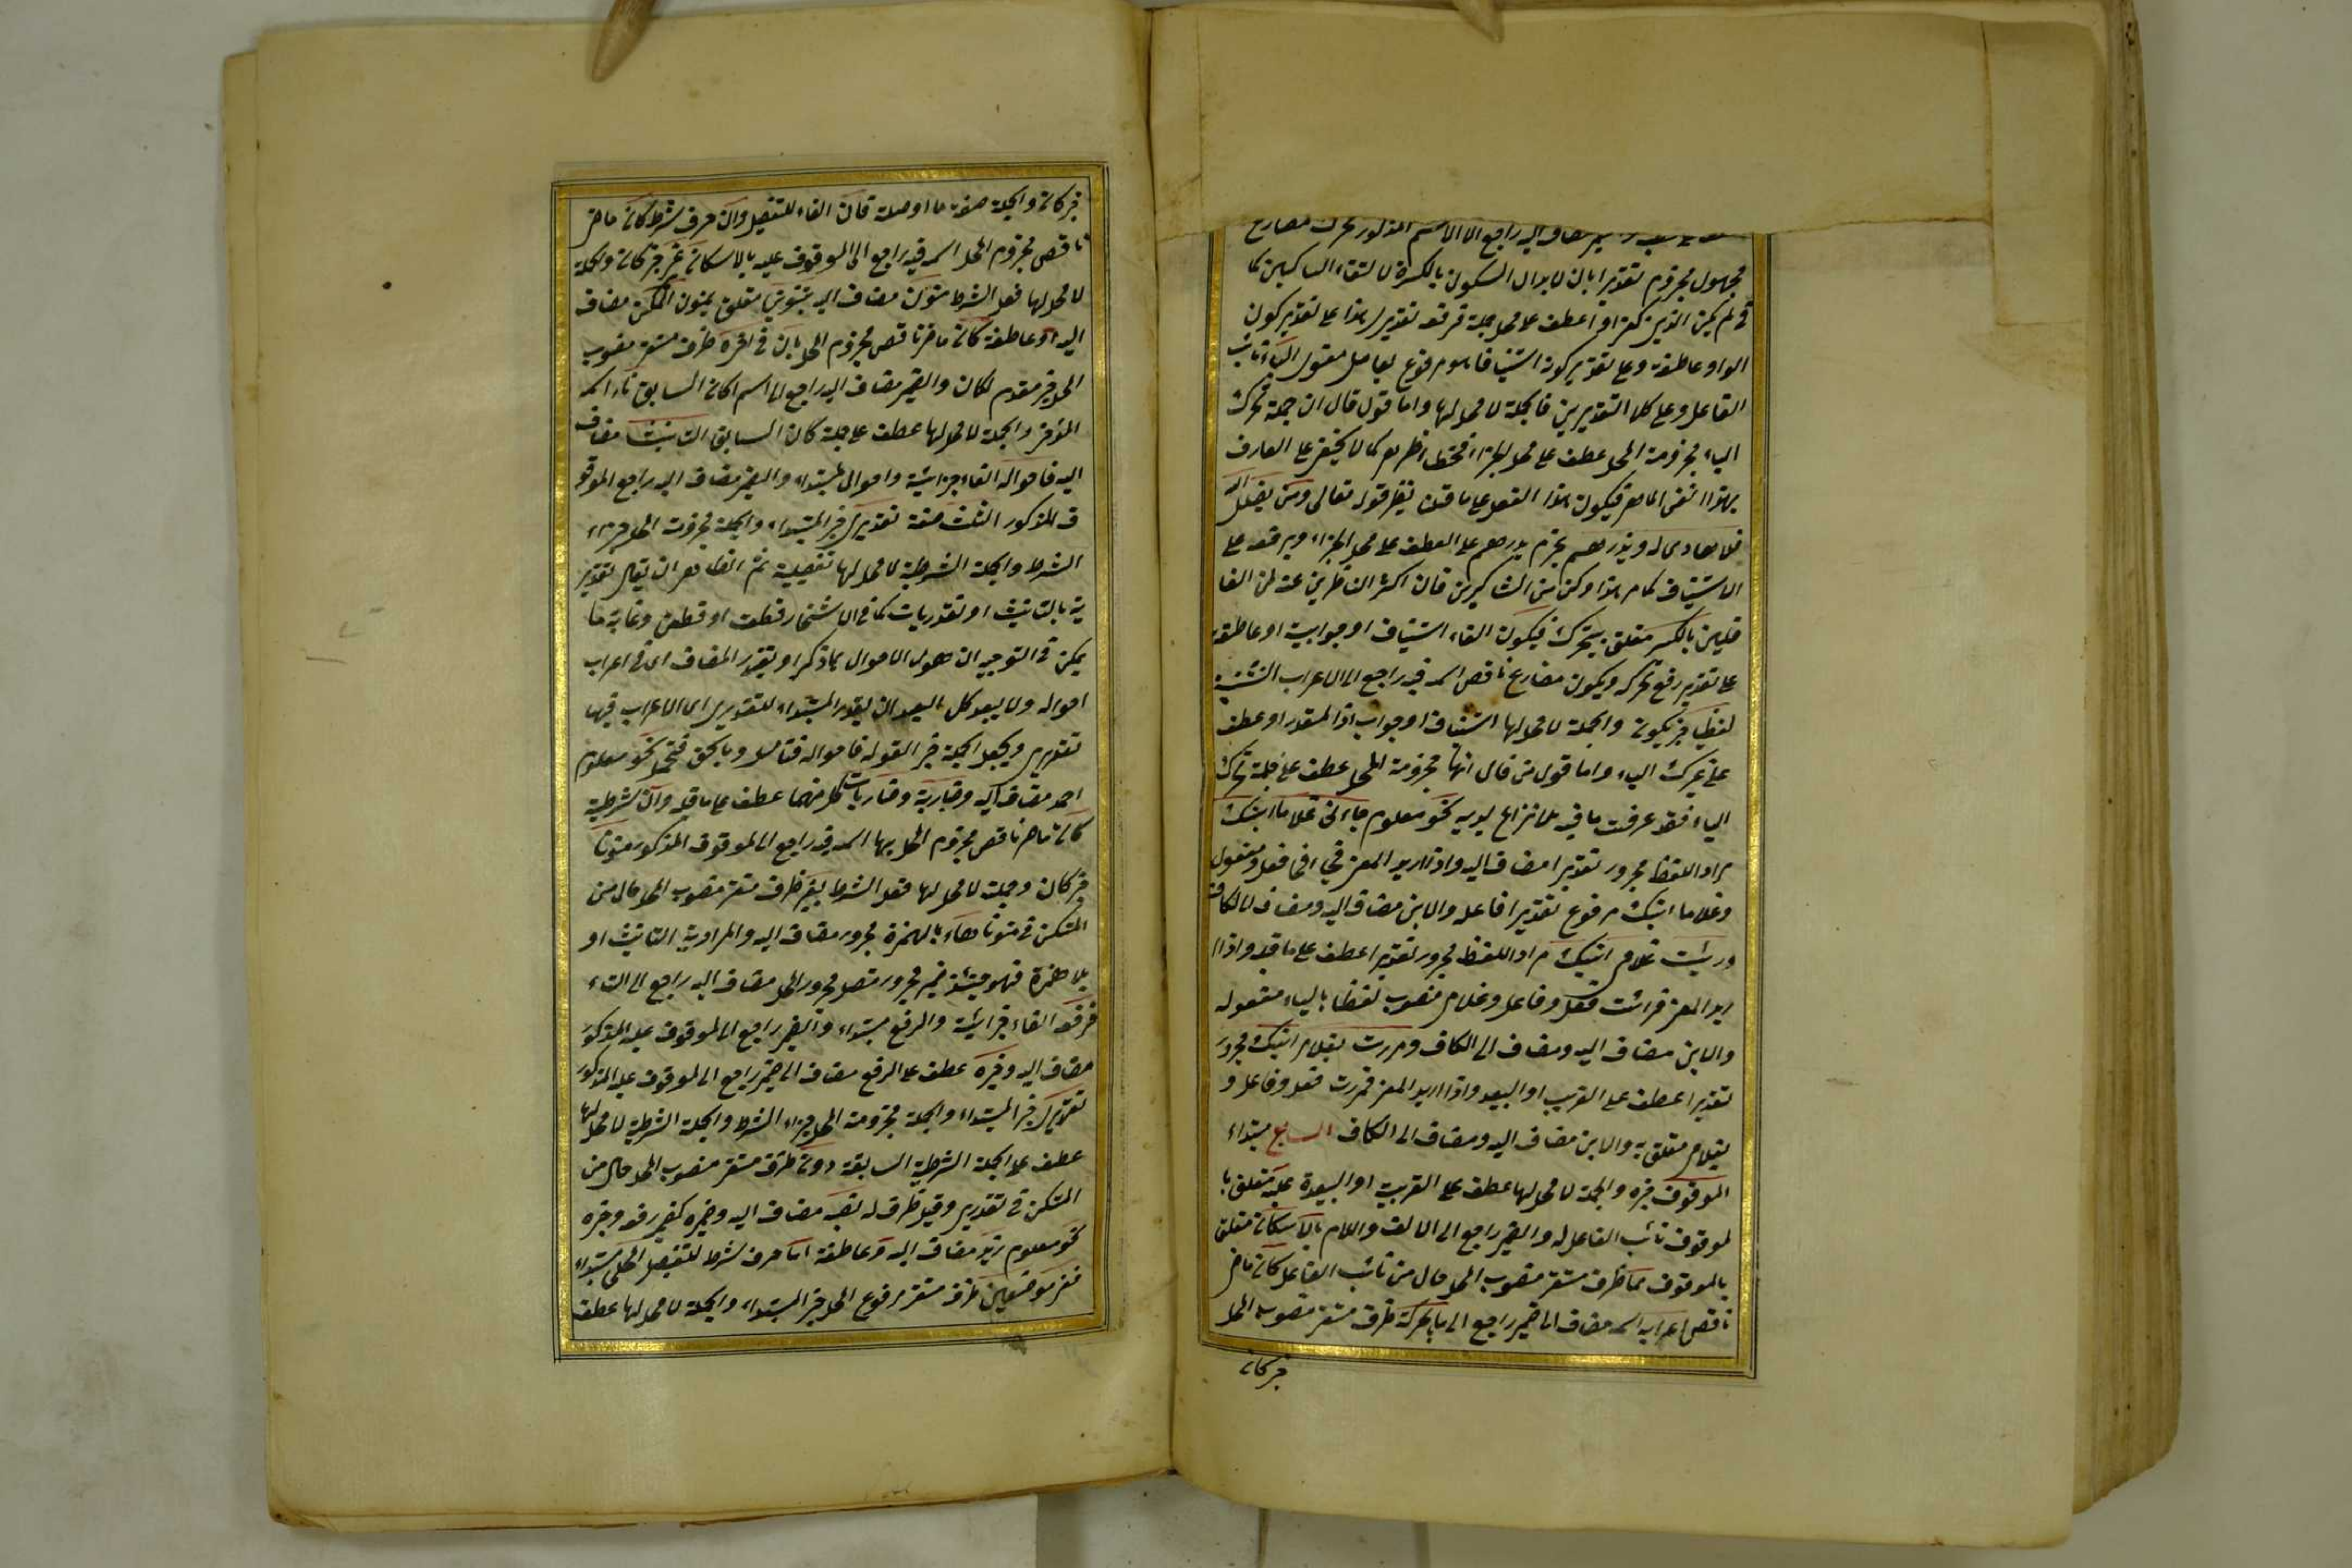 مضاف اليه راجع الى الاسم المذكور تحرك مضارع
مجهول مجزوم تقديرا بان لابدال السكون بالكسرة لالتقاء الساكنين كما
فى لم يكن الذين كفروا عطف على محل جملة فرفعه تقديرى هذا على تقدير كون
الواو عاطفة وعلى تقدير كونه استينافا هو مرفوع بعامل معنوى الياء نائب
الفاعل وعلى كلا التقديرين فالجملة لا محل لها واما قول قال ان جملة تحرك
الياء مجزومة المحل عطف على محل الجزاء فخطاء ظاهر كما لا يخفى على العارف
بهذا الفن الماهر فيكون هذا الفعل على ما قلت نظير قوله تعالى ومن يضلل الله
فلا هادى له ويذرهم بجزم يذرهم على العطف على محل الجزاء وبرفعه على
الاستيناف كما مر هذا وكن من الشاكرين فان اكثر الناظرين عنه لمن الغا
فلين بالكسر متعلق بتحرك فيكون الفاء استيناف او جوابية او عاطفة
على تقدير رفع تحرك ويكون مضارع ناقص اسمه فيه راجع الى الاعراب
لفظيا خبر يكون والجملة لا محل لها استيناف او جواب اذا المقدر او عطف
على تحرك الياء واما قول من قال انها مجزومة المحل عطف على جملة تحرك
الياء فقد عرفت ما فيه بلا نزاع لديه نحو معلوم جاءنى غلاما ابنك
مراد اللفظ مجرور تقديرا مضاف اليه واذا اريد المعنى فجاءنى فعل ومفعول
وغلاما ابنك مرفوع تقديرا فاعله والابن مضاف اليه ومضاف لالكاف
ورئيت غلامى ابنك مراد اللفظ مجرور تقديرا عطف على ما قبله واذا ا
ريد المعنى فرائت فعل وفاعل وغلامى منصوب لفظا بالياء مفعوله
والابن مضاف اليه ومضاف الى الكاف ومررت بغلامى ابنك مجرور
تقديرا عطف على القريب او البعيد واذا اريد المعنى فمررت فعل وفاعل و
بغلامى متعلق به والابن مضاف اليه ومضاف الى الكاف السابع مبتداء
الموقوف خبره والجملة لا محل لها عطف على القريبة او البعيدة عليه متعلق با
لموقوف نائب الفاعل له والضمير راجع الى الالف واللام بالاسكان متعلق
بالموقوف مما ظرف مستقر منصوب المحل حال من نائب الفاعل كان ماض
ناقص اعرابه اسمه مضاف الى ضمير راجع الى ما بالحركة ظرف مستقر منصوب المحل
خبر كان
خبر كان والجملة صفة ما او صلة فان الفاء للتفصيل وان حرف شرط كان ماض
ناقص مجزوم المحل اسمه فيه راجع الى الموقوف عليه بالاسكان خبر كان والجملة
لا محل لها فعل الشرط منون مضاف اليه بتنوين متعلق بمنون التمكن مضاف
اليه او عاطفة كان ماض ناقص مجزوم المحل بان فى آخره ظرف مستقر منصوب
المحل خبر مقدم لكان والضمير مضاف اليه راجع الى اسم كان السابق تاء اسمه
المؤخر والجملة لا محل لها عطف على جملة كان السابق التانيث مضاف
اليه فاحواله الفاء جزائية واحوال مبتداء والضمير مضاف اليه راجع الموقو
ف المذكور الثلث صفة تقديرى خبر المبتداء والجملة مجزومة المحل جزاء
الشرط والجملة الشرطية لا محل لها تفصيلية ثم الظاهر ان يقال تقدير
ية بالتانيث او تقديريات كما فى الاشجار قطعت او قطعن وغاية ما
يمكن فى التوجيه ان يعول الاحوال بما ذكر او يقدر المضاف اى فى اعراب
احواله ولا يبعد كل البعد ان يقدر المبتداء للتقديرى اى الاعراب فيها
تقديرى ويجعل الجملة خبر القوله فاحواله فتامل وبالحق فتحمل نحو معلوم
احمد مضاف اليه وضاربة وضاربات كل منهما عطف على ما قبله وان شرطية
كان ماض ناقص مجزوم المحل بها اسمه فيه راجع الى الموقوف المذكور منونا
خبر كان وجملة لا محل لها فعل الشرط بغير ظرف مستقر منصوب المحل حال من
المستكن فى منونا هاء بالهمزة مجرور مضاف اليه والمراد به التانيث او
بلا همزة فهو حينئذ ضمير مجرور متصل مجرور المحل مضاف اليه راجع الى التاء
فرفعه الفاء جزائية والرفع مبتداء والضمير راجع الى الموقوف عليه المذكور
مضاف اليه وجره عطف على الرفع مضاف الى ضمير راجع الى الموقوف عليه المذكور
تقديرى خبر المبتداء والجملة مجزومة المحل جزاء الشرط والجملة الشرطية لا محل لها
عطف على الجملة الشرطية السابقة دون ظرف مستقر منصوب المحل حال من
المستكن فى تقديرى وقيل ظرف له نصبه مضاف اليه وضميره كضمير رفعه وجره
نحو معلوم زيد مضاف اليه وعاطفة اما حرف شرط للتفصيل المحلى مبتداء
ففى موضعين ظرف مستقر مرفوع المحل خبر المبتداء والجملة لا محل لها عطف